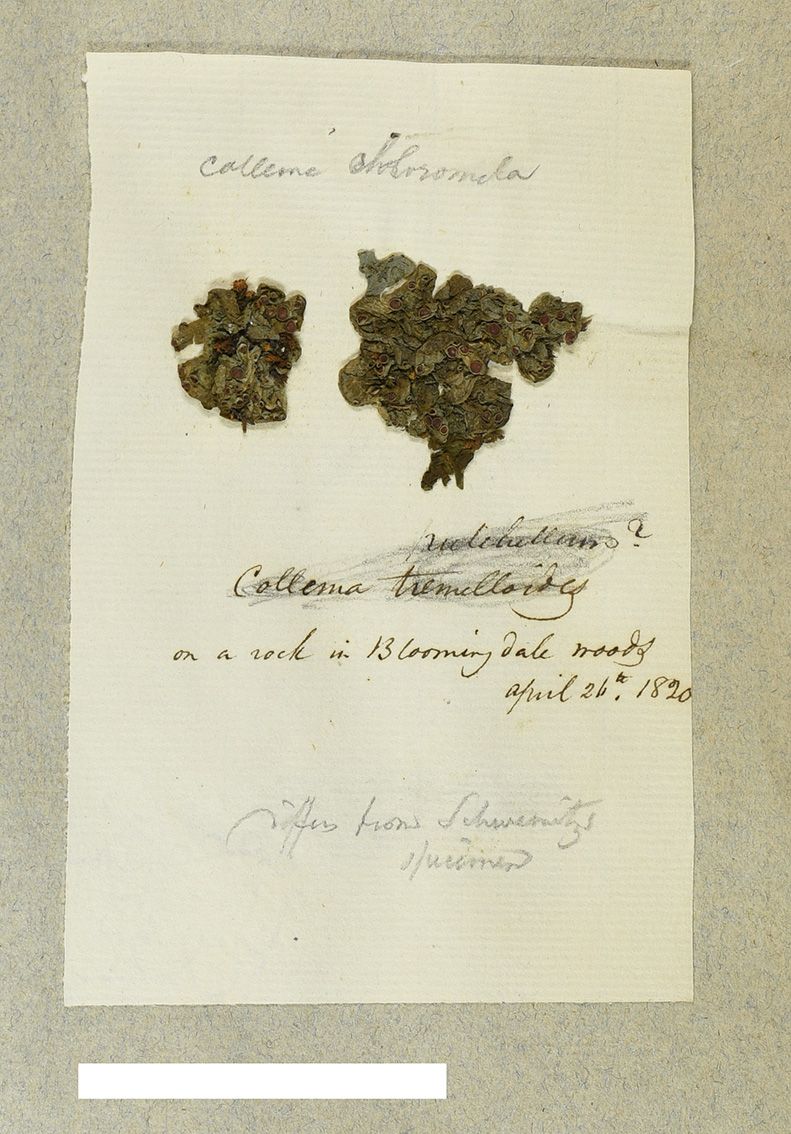 Collema chloromela
pulchellum?
Collema tremelloides
on a rock in Bloomingdale woods
april 26th. 1820
differs from Schweinitz's
specimen